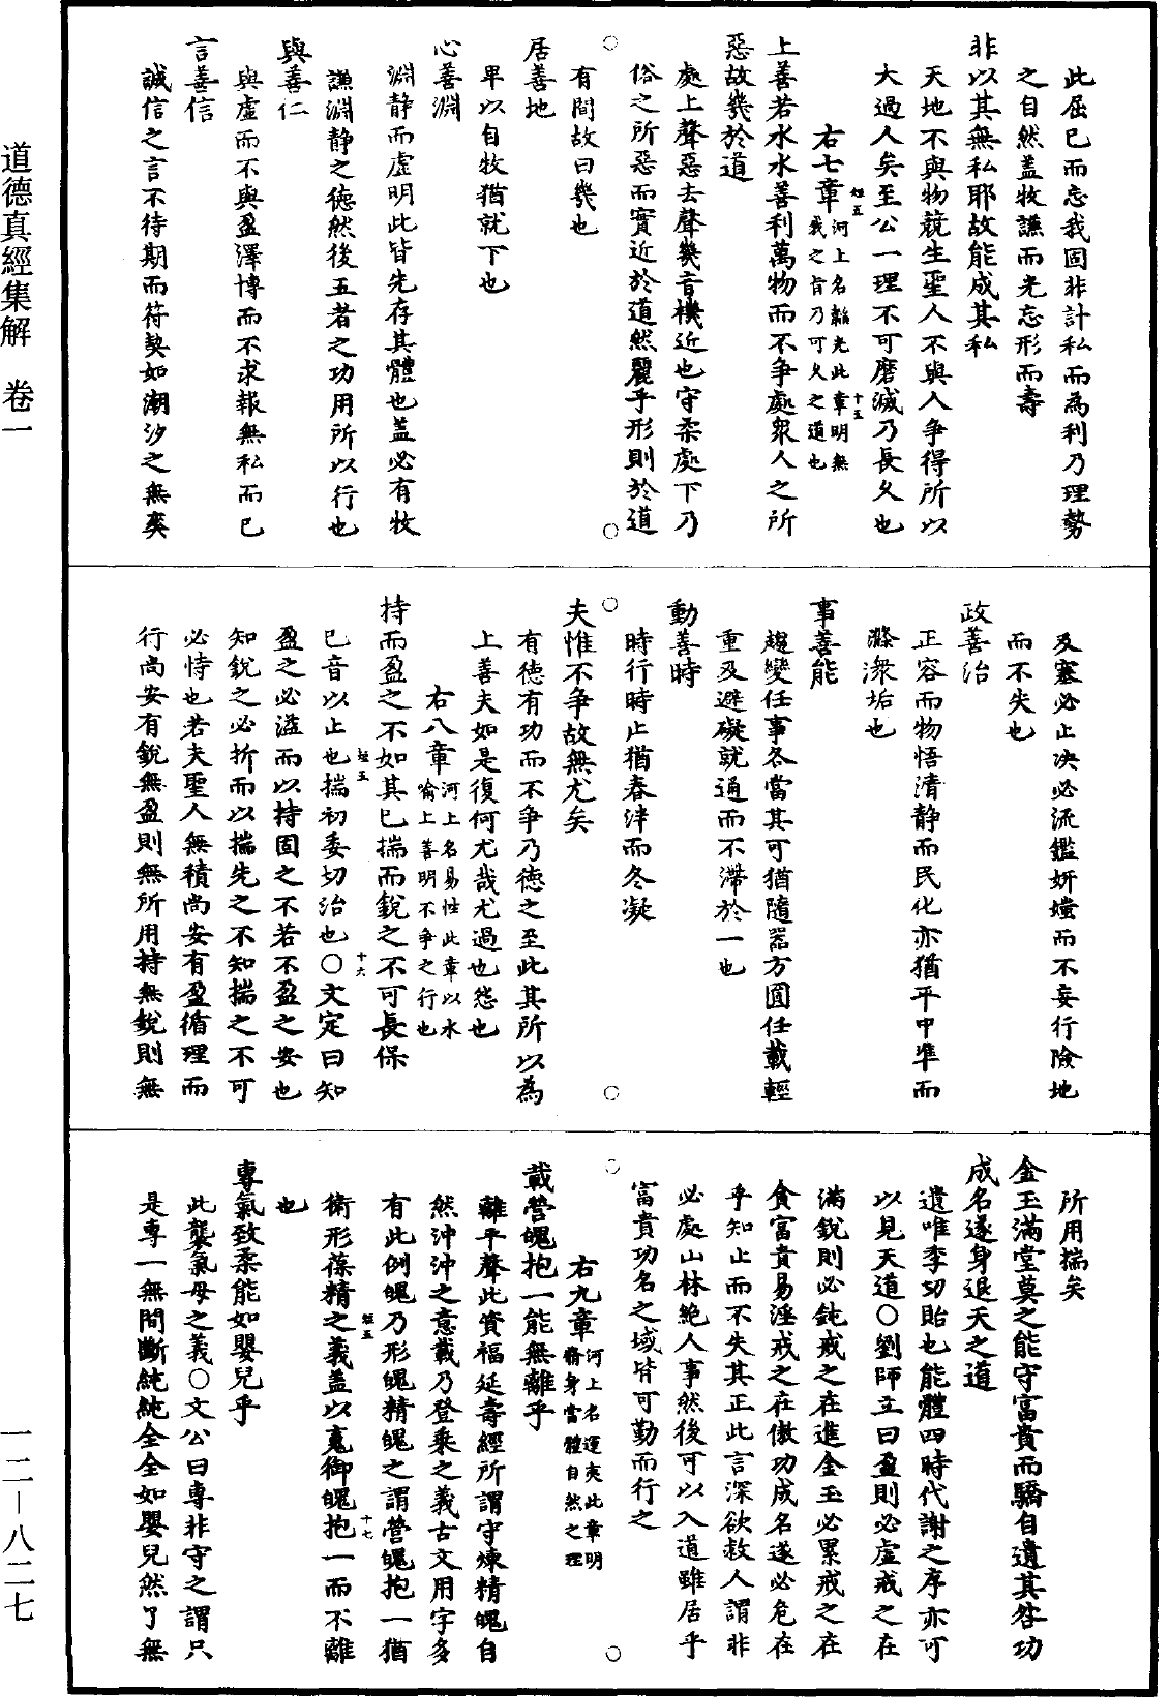 此屈己而忘我固非計私而為利乃理勢
之自然蓋牧謙而光忘形而壽
非以其無私耶故能成其私
天地不與物競生聖人不與人争得所以
大過人矣至公一理不可磨滅乃長久也
右七章河上名韜光此章明無
我之旨乃可久之道也
短五
十五
上善若水水善利萬物而不争處衆人之所
惡故幾於道
處上聲惡去聲幾音機近也守柔處下乃
俗之所惡而實近於道然麗乎形則於道
有間故曰幾也
居善地
卑以自牧猶就下也
心善淵
淵静而虛明此皆先存其體也蓋必有牧
謙淵静之德然後五者之功用所以行也
與善仁
與虛而不與盈澤博而不求報無私而已
言善信
誠信之言不待期而符契如潮汐之無爽
及塞必止決必流鑑妍媸而不妄行險地
而不失也
政善治
正容而物悟清静而民化亦猶平中準而
滌衆垢也
事善能
趨變任事各當其可猶隨器方圓任載輕
重及避礙就通而不滯於一也
動善時
時行時止猶春泮而冬凝
夫惟不争故無尤矣
有德有功而不争乃德之至此其所以為
上善夫如是復何尤哉尤過也怨也
右八章河上名易性此章以水
喻上善明不争之行也
持而盈之不如其已揣而銳之不可長保
短五
十六
已音以止也揣初委切治也○文定曰知
盈之必溢而以持固之不若不盈之安也
知銳之必折而以揣先之不知揣之不可
必恃也若夫聖人無積尚安有盈循理而
行尚安有銳無盈則無所用持無銳則無
所用揣矣
金玉滿堂莫之能守富貴而驕自遺其咎功
成名遂身退天之道
遺唯季切貽也能體四時代謝之序亦可
以見天道○劉師立曰盈則必虛戒之在
滿銳則必鈍戒之在進金玉必累戒之在
貪富貴易淫戒之在傲功成名遂必危在
乎知止而不失其正此言深欲救人謂非
必處山林絶人事然後可以入道雖居乎
富貴功名之域皆可勤而行之
右九章河上名運夷此章明
脩身當體自然之理
載營魄抱一能無離乎
離平聲此資福延壽經所謂守煉精魄自
然沖沖之意載乃登乘之義古文用字多
有此例魄乃形魄精魄之謂營魄抱一猶
短五
十七
衛形葆精之義蓋以䰟御魄抱一而不離
也
專氣致柔能如嬰兒乎
此襲氣母之義○文公曰專非守之謂只
是專一無間斷純純全全如嬰兒然了無
道德真經集解 卷一
一二—八二七